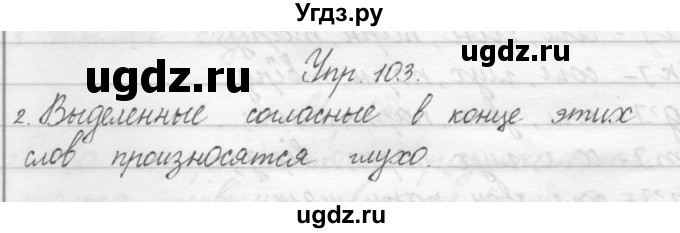 Угдз.ру
Упр. 103.
ugdz.ru
ugdz.ru
2. Выделенные согласные в конце этих
слов произносятся глухо.
ugdz.ru